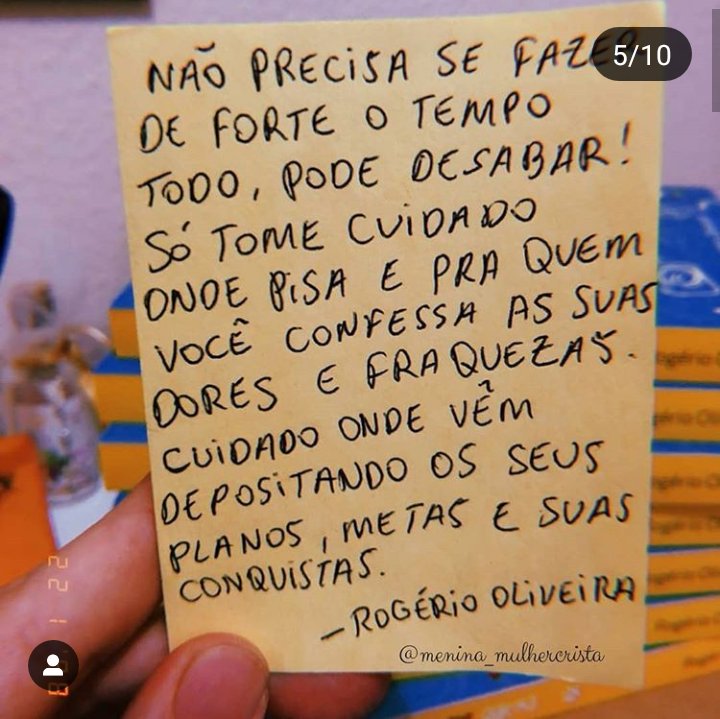 5/10
NÃO PRECISA SE FAZER
DE FORTE O TEMPO
TODO, PODE DESABAR!
SÓ TOME CUIDADO
ONDE PISA E PRA QUEM
VOCÊ CONFESSA AS SUAS
DORES E FRAQUEZAS.
CUIDADO ONDE VÊM
DEPOSITANDO OS SEUS
PLANOS, METAS E SUAS
CONQUISTAS.
— ROGÉRIO OLIVEIRA
@menina_mulhercrista